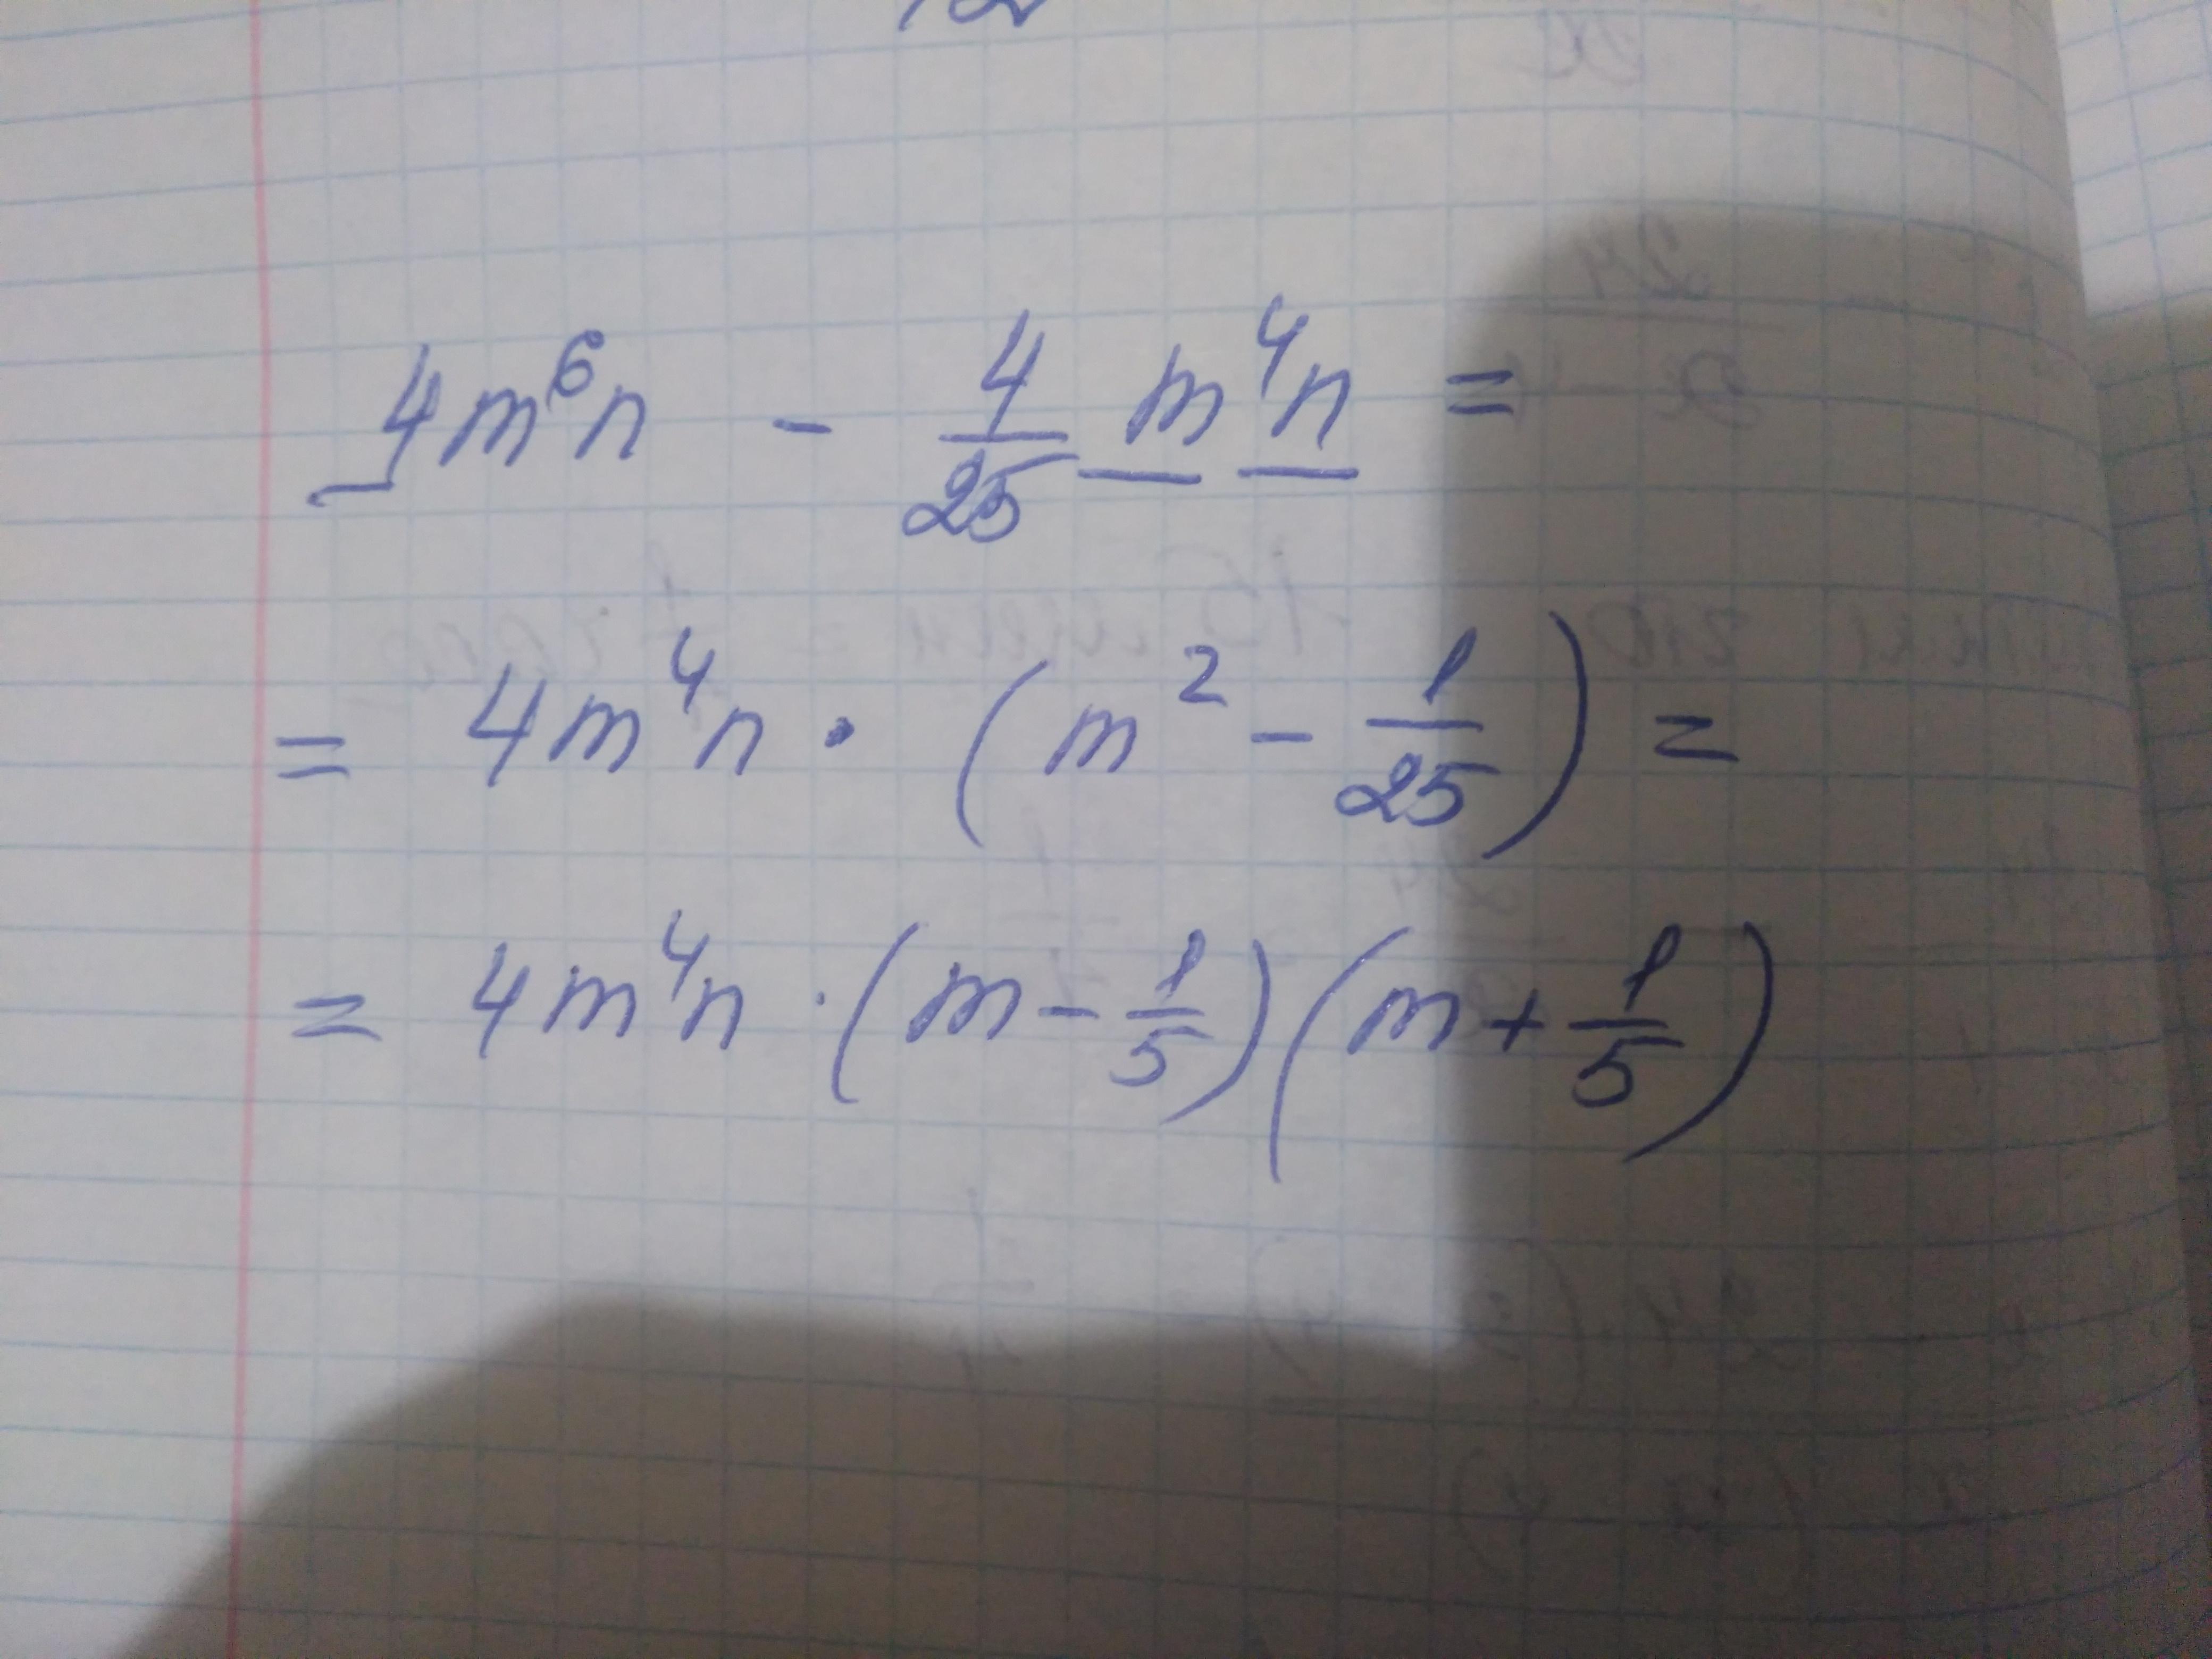 4m⁶n - 4/25 m⁴n =
= 4m⁴n · (m² - 1/25) =
= 4m⁴n · (m - 1/5)(m + 1/5)